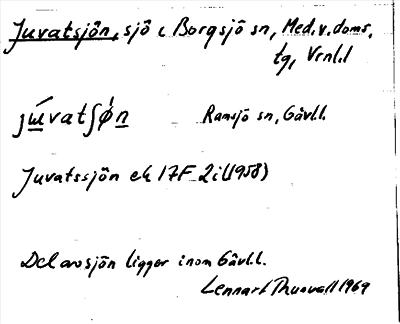 Juvatsjön, sjö i Borgsjö sn, Med. v. doms.
tg, Vrnl.l
jɯ́vatʃø̀n Ramsjö sn, Gävl.l.
Juvatssjön ek 17F 2i (1958)
Del av sjön ligger inom Gävl.l.
Lennart Thunvall 1969